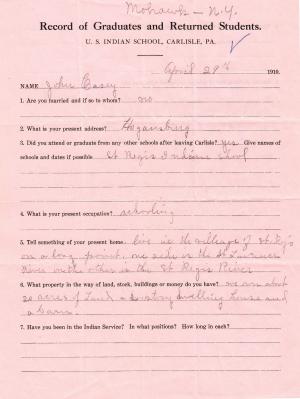 Mohawk - N.Y.
Record of Graduates and Returned Students.
U. S. INDIAN SCHOOL, CARLISLE, PA.
April 29th 1910.
NAME John Casey
1. Are you married and if so to whom? no
2. What is your present address? Hogansburg
3. Did you attend or graduate from any other schools after leaving Carlisle? yes Give names
of schools and dates if possible St Regis Indian School
4. What is your present occupation? schooling
5. Tell something of your present home. live in the village of St Regis
on a long point, one side is the St Lawrence
River on the other is the St Regis River
6. What property in the way of land, stock, buildings or money do you have? we own about
20 acres of Land a story dwelling house and
a barn.
7. Have you been in the Indian Service? In what positions? How long in each?